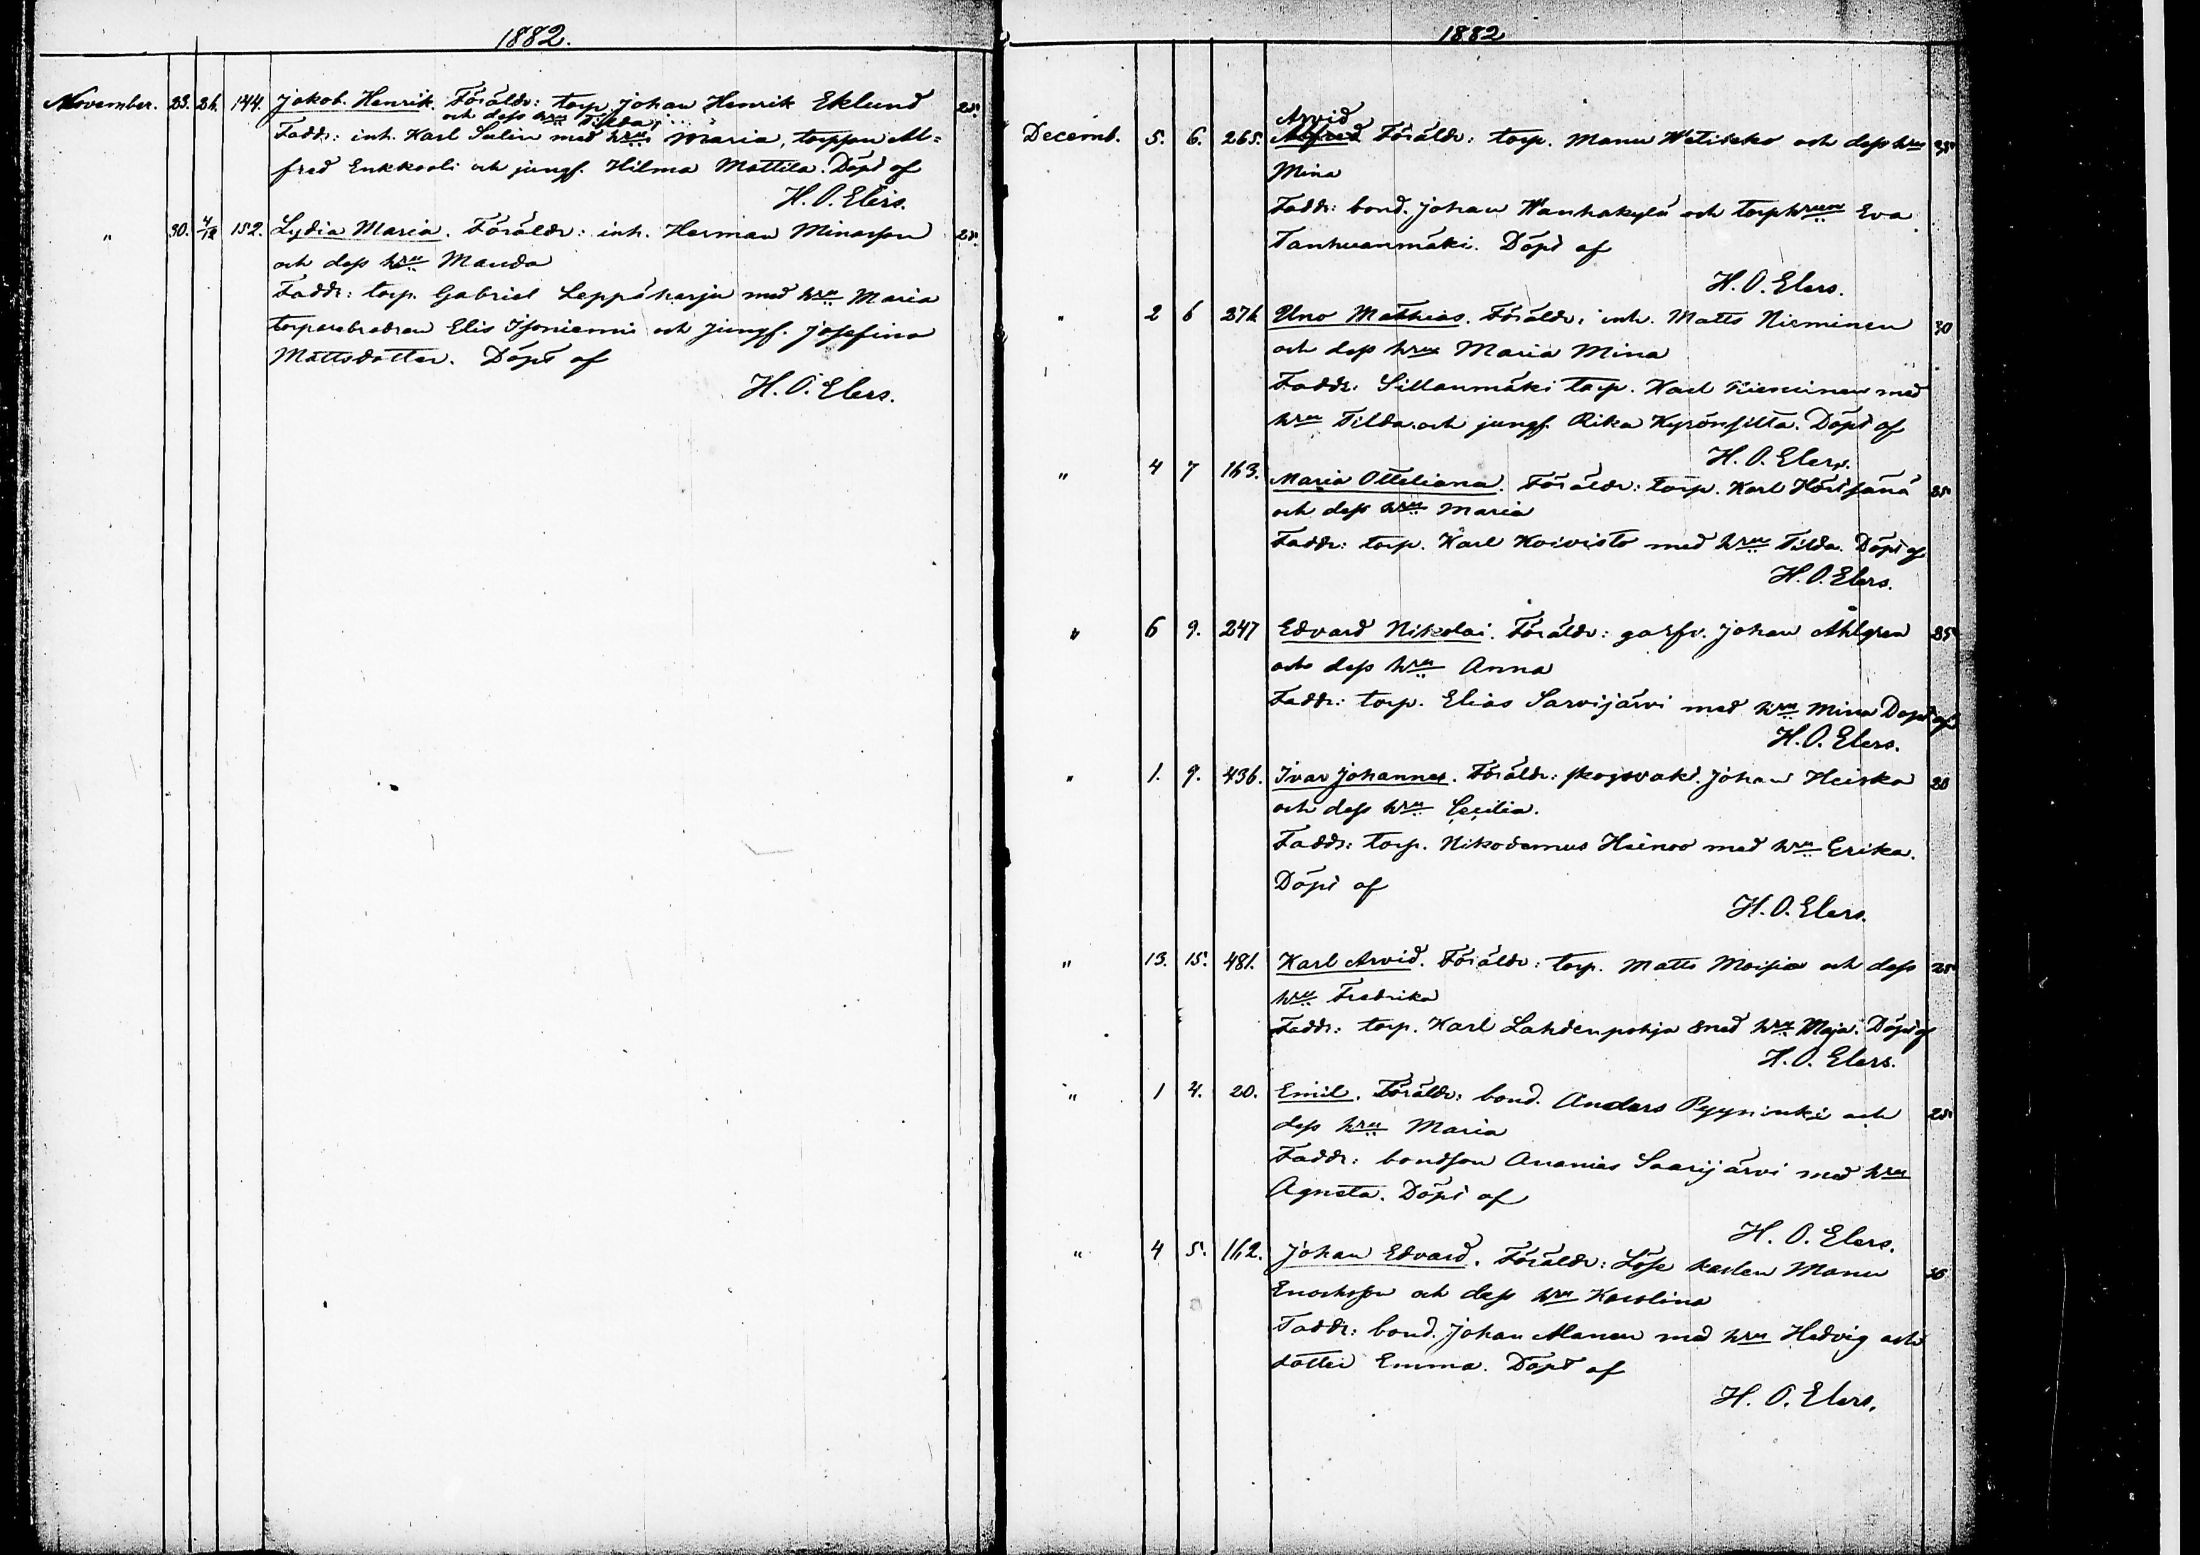 1882.
November. 23. 26. 144. Jakob Henrik. Föräldr: torp. Johan Henrik Eklund 25.
och dess hru Tilda
Faddr: inh. Karl Salin med hru Maria, torpson Al-
fred Enkkooli och jungf. Hilma Mattila. Döpt af
H. O. Elers.
" 30. 4/12 152. Lydia Maria. Föräldr: inh. Herman Minasson 25.
och dess hru Manda
Faddr: torp. Gabriel Leppäharju med hru Maria
Isoniemi och jungf. Josefina
Mattsdotter. Döpt af
H. O. Elers.
1882
Arvid
Decemb. 5. 6. 265. Alfred Föräldr: torp. Manu Wetikko och dess hru 35
Mina
Faddr: bond. Johan Wanhakylä och torphrun Eva
Tanhuanmäki. Döpt af
H. O. Elers.
" 2 6 276 Uno Mathias. Föräldr: inh. Matts Nieminen 30
och dess hru Maria Mina
Faddr: Sillanmäki torp. Karl Nieminen med
hru Tilda och jungf. Rika Kyrönsilta. Döpt af
H. O. Elers.
" 4 7 163. Maria Otteliana. Föräldr: torp. Karl 25
och dess hru Maria
Faddr: torp. Karl Koivisto med hru Tilda. Döpt af
H. O. Elers.
" 6 9. 247 Edvard Nikolai. Föräldr: garfv. Johan Ahlgren 35
och dess hru Anna
Faddr: torp. Elias Sarvijärvi med hru Mina Döpt af
H. O. Elers.
" 1. 9. 436. Ivar Johannes. Föräldr: skogsvakt. Johan Heiska 20
och dess hru Cecilia.
Faddr: torp. Nikodemus Heinoo med hru Erika.
Döpt af
H. O. Elers.
" 13. 15. 481. Karl Arvid. Föräldr: torp. Matts Moisio och dess 25
hru Fredrika
Faddr: torp. Karl Lahdenpohja med hru Maja. Döpt af
H. O. Elers.
" 1 4. 20. Emil. Föräldr: bond. Anders Pyyninki och 25
dess hru Maria
Faddr: bondson Ananias Saarijärvi med hru
Agneta. Döpt af
H. O. Elers.
" 4 5. 162. Johan Edvard. Föräldr: Löse karlen Manu
Enochsson och dess hru Karolina
Faddr: bond. Johan Alanen med hru Hedvig och
dotter Emma. Döpt af
H. O. Elers.